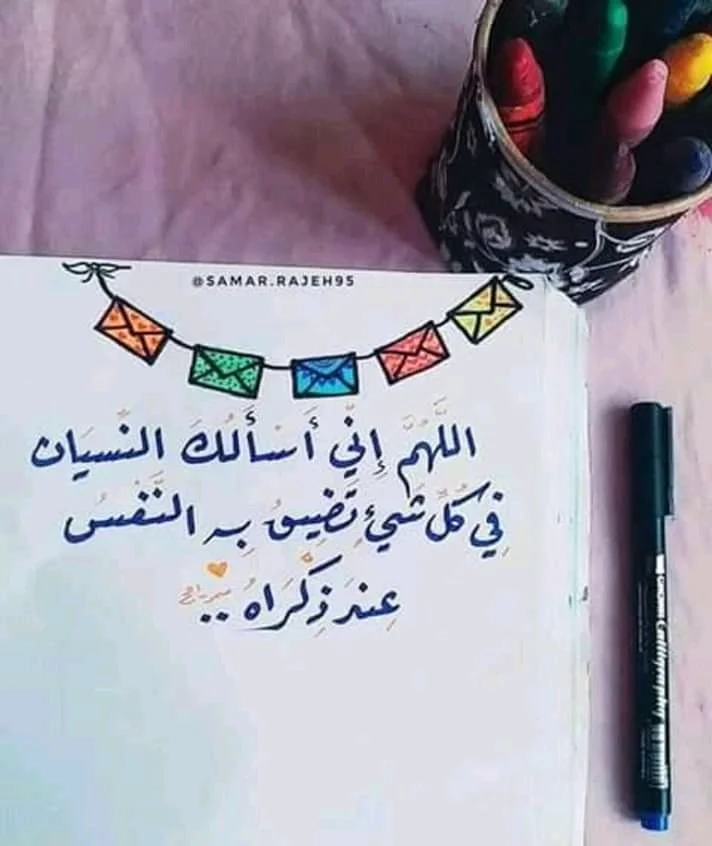 @SAMAR.RAJEH95
اللَّهُمَّ إِنِّي أَسْأَلُكَ النِّسيَان
فِي كُلِّ شَيءٍ تَضِيقُ بِهِ النَّفْسُ
عِندَ ذِكْرَاهُ ..
سمر راجح
Calligraphy